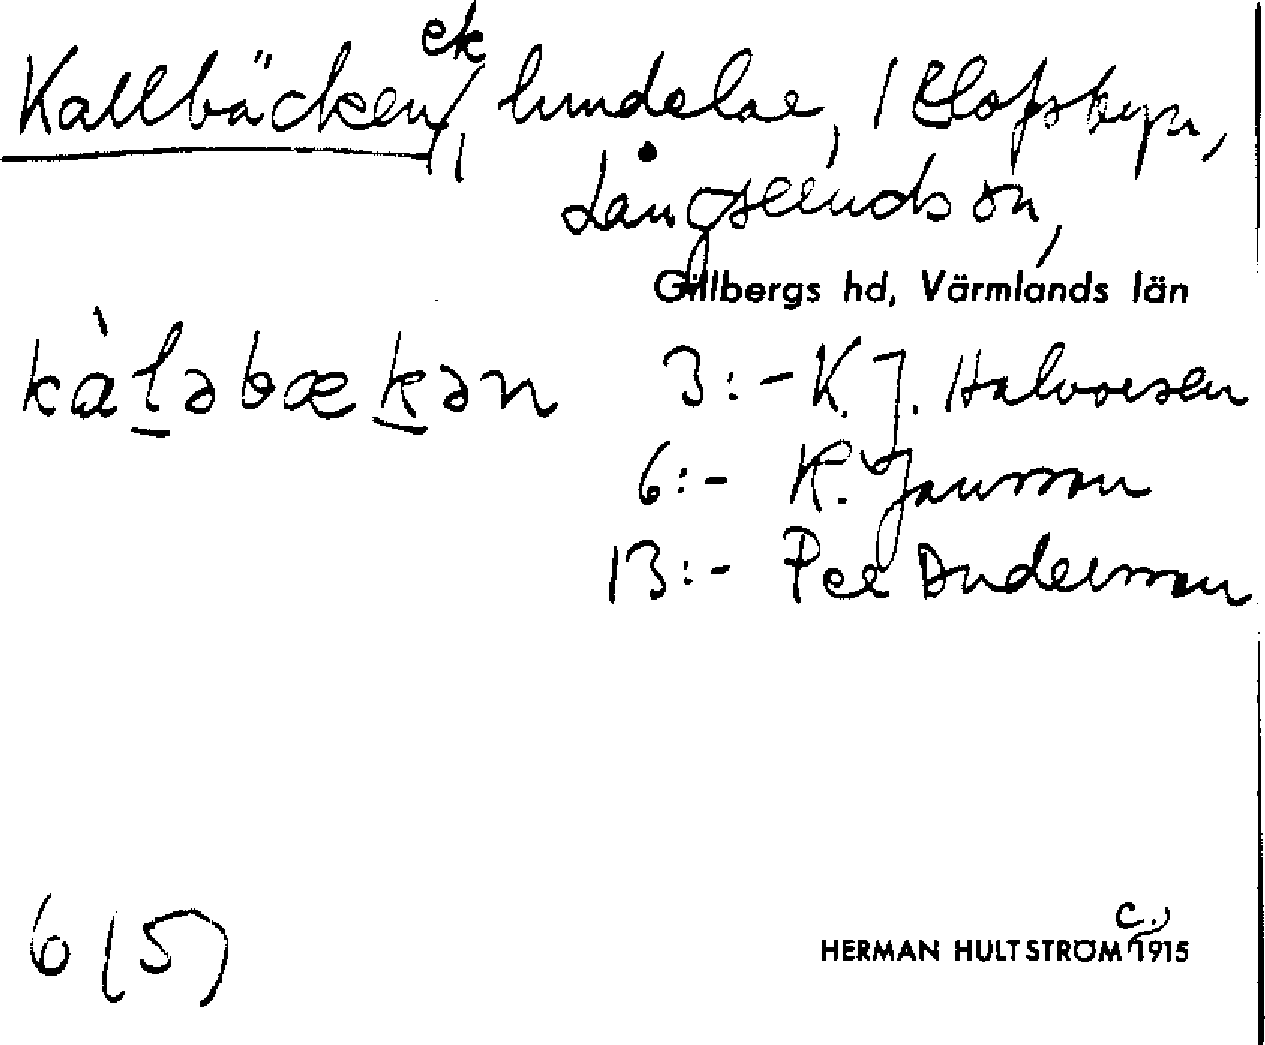 Kallbäcken, ek, lundelar, 1 Elofsbyn,
Långseruds sn,
Gillbergs hd, Värmlands län
kàḻəbæḵən 3:- K. J. Halvorsen
6:- K. Jansson
13:- Per Andersson
6 (5)
HERMAN HULTSTRÖM c.) 1915